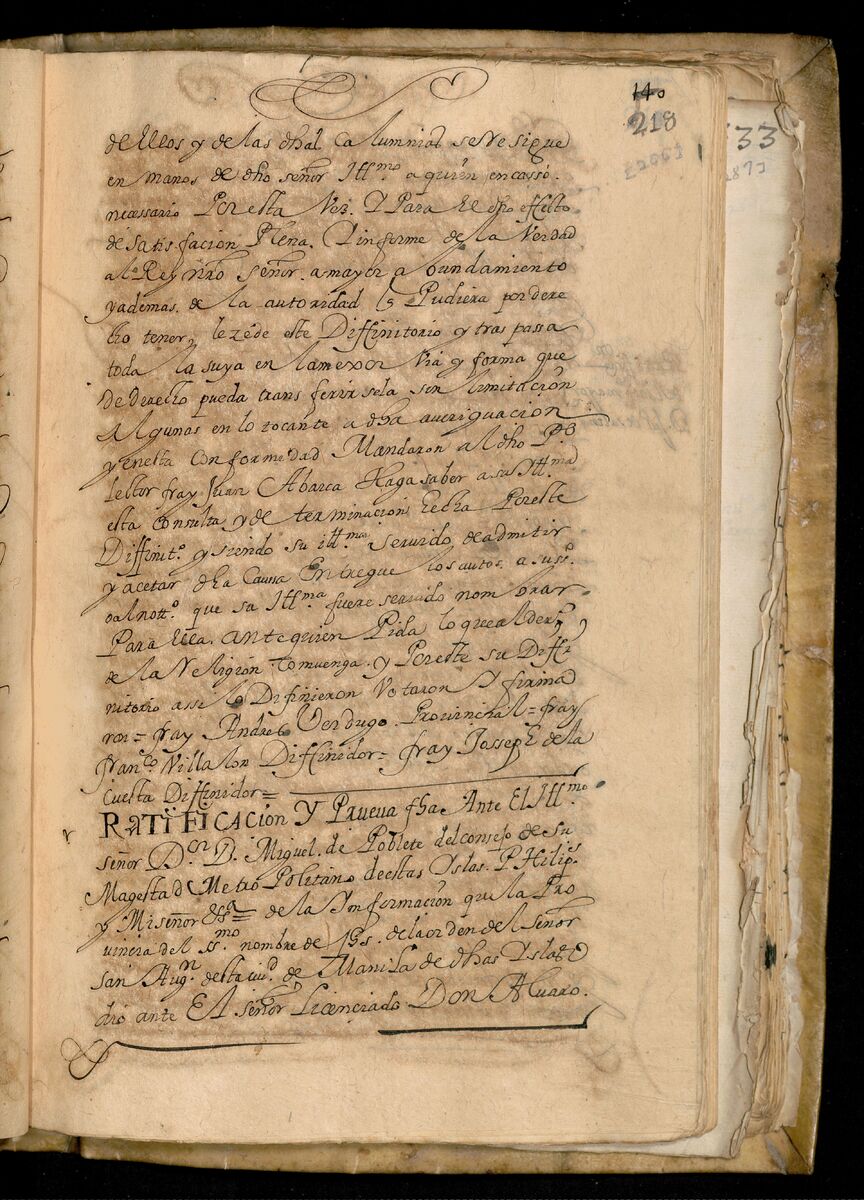 140
218
33
de llos y de las dhas Calumnias se Resigue
en manos de dho señor Ill.mo a quien en casso
necessario Por esta Vez. Y Para el dho effecto
de satisfacion Plena. Y informe de la Verdad
a lo Rey nro señor. a mayor abundamiento
y ademas. de la autoridad q Pudiera por dere
cho tener, le zede este Diffinitorio y traspassa
toda la suya en la mexor Via y forma que
de derecho pueda transferirsela sin limitacion
Algunas en lo tocante a dha aueriguacion
y en esta Conformidad Mandaron al dho P.e
Lector fray Juan Abarca Haga saber a su Ill.ma
esta Consulta y determinacion hecha Por este
Diffinit.o y siendo su ill.ma seruido de admitir
y acetar dha Caussa Entregue los autos a su ss.a
o al nott.o que sa Ill.ma fuere seruido nombrar
Para ella. ante quien Pida lo que al der.o
de la Religion Comuenga. y Por este su Diffi
nitorio assi lo Difinieron Votaron Y firma
ron = fray Andres Verdugo Prouinchal = fray
Fran.co Villalon Diffinidor = fray Josseph de la
Cuesta Diffinidor =
RATIFICACION Y Prueua fha Ante El Ill.mo
señor D.or D. Miguel de Poblete del consejo de su
Magestad Metropolitano de estas Yslas. Philip.s
y Mi señor de la Ynformacion que la Pro
uincia del ss.mo nombre de Jhs. de la orden del señor
san Aug.n desta ciu.d de Manila de dhas Yslas
dió ante El señor Licenciado Don Aluaro.